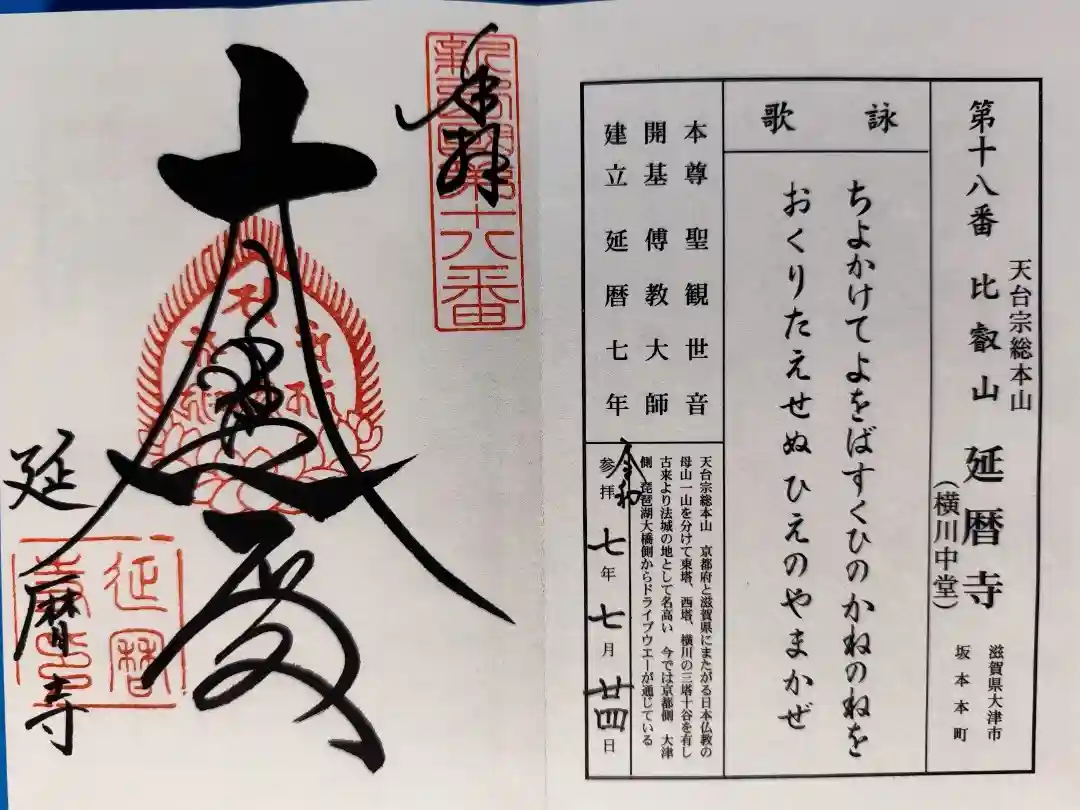 天台宗総本山
第十八番 比叡山 延暦寺
(横川中堂)
滋賀県大津市
坂本本町
詠歌
ちよかけてよをばすくひのかねのねを
おくりたえせぬひえのやまかぜ
本尊 聖観世音
開基 傅教大師
建立 延暦七年
天台宗総本山 京都府と滋賀県にまたがる日本仏教の
母山一山を分けて東塔、西塔、横川の三塔十谷を有し
古来より法城の地として名高い 今では京都側 大津
側 琵琶湖大橋側からドライブウエーが通じている
令和
参拝 七年 七月 廿四日
奉拝
新西国第十八番
延暦寺
延暦寺印